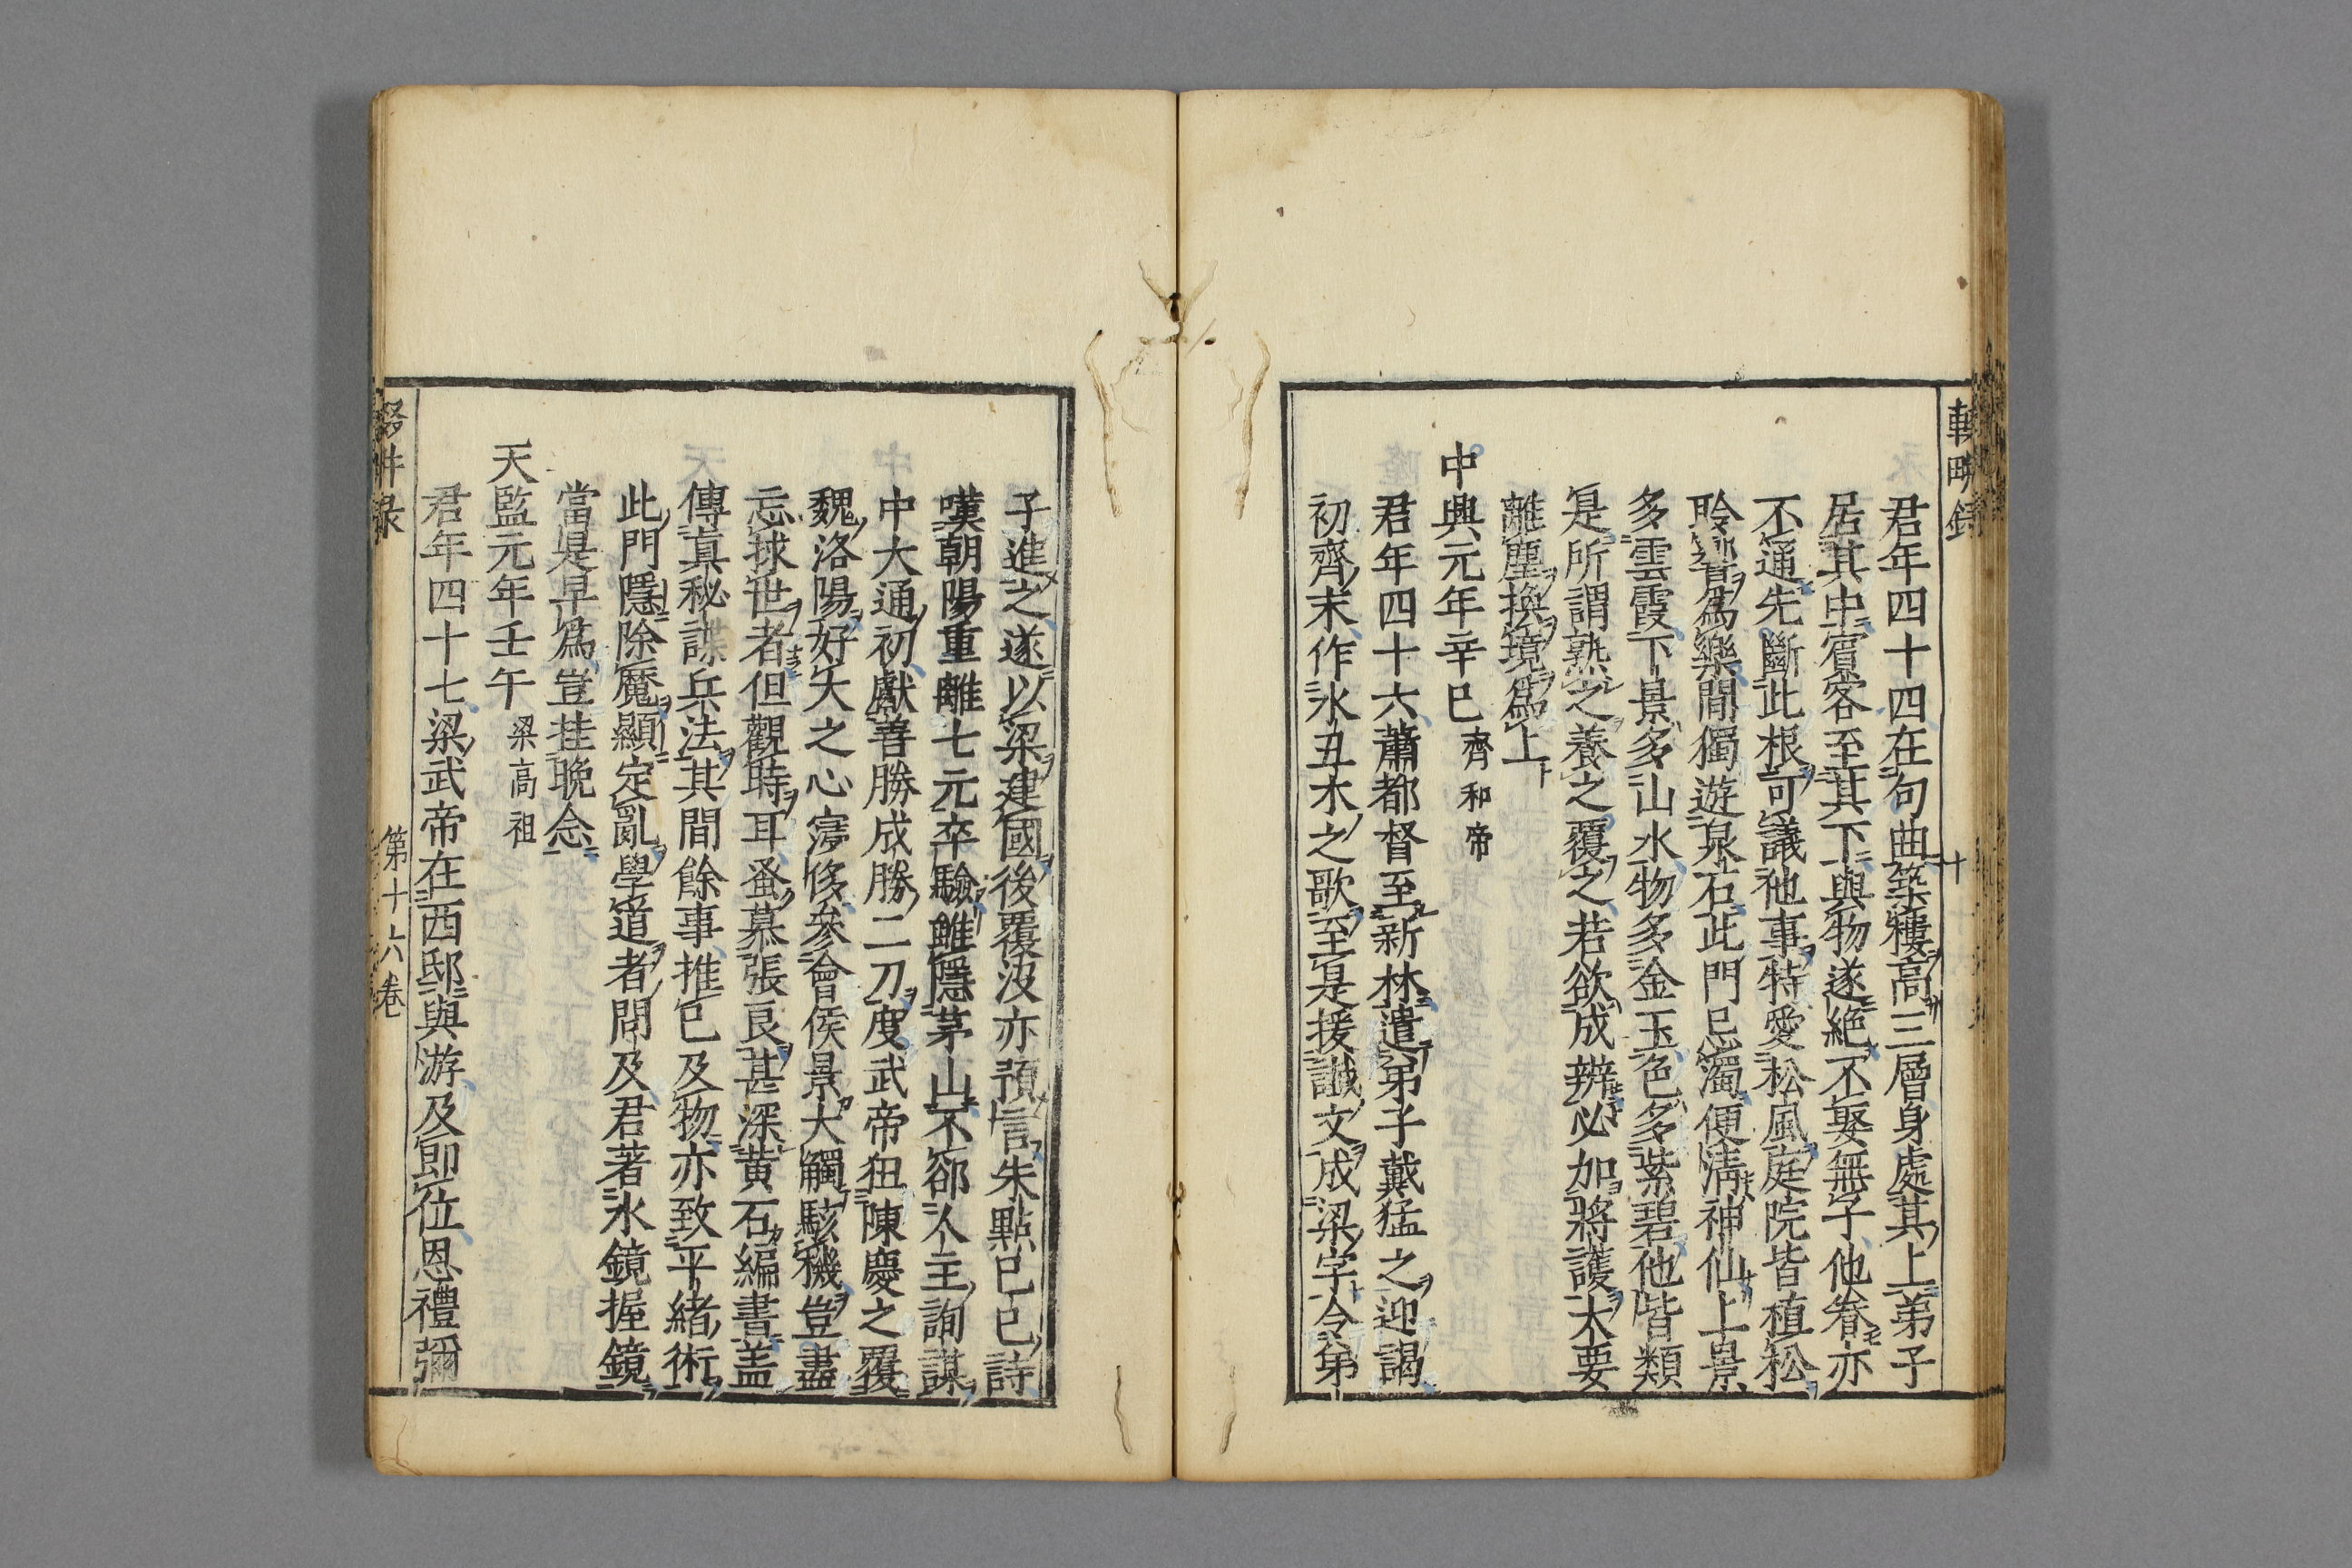 君年四十四在句曲築樓高三層身處其上弟子
居其中賓客至其下與物遂絶不娶無子他眷亦
不通先斷此根可議他事特愛松風庭院皆植松
聆響爲樂間獨遊泉石此門忌濁便清神仙上景
多雲霞下景多山水物多金玉色多紫碧他皆類
是所謂熟之養之覆之若欲成辨必加將護大要
離塵換境爲上
中興元年辛巳齊和帝
君年四十六蕭都督至新林遣弟子戴猛之迎謁
初齊末作水丑木之歌至是援讖文成梁字令弟
十
子進之遂以梁建國後覆没亦預言朱點巳巳詩
嘆朝陽重離七元卒驗雖隱茅山不郤人主詢謀
中大通初獻善勝成勝二刀度武帝狃陳慶之覆
魏洛陽好大之心寖侈參會侯景大觸駭穖豈盡
忘捄世者但觀時耳蚤慕張良甚深黄石編書盖
傳真秘諜兵法其間餘事推已及物亦致平緒術
此門隱除魔顯定亂學道者問及君著水鏡握鏡
當是早爲豈挂晩念
天監元年壬午梁高祖
君年四十七梁武帝在西邸與游及即位恩禮彌
第十六卷